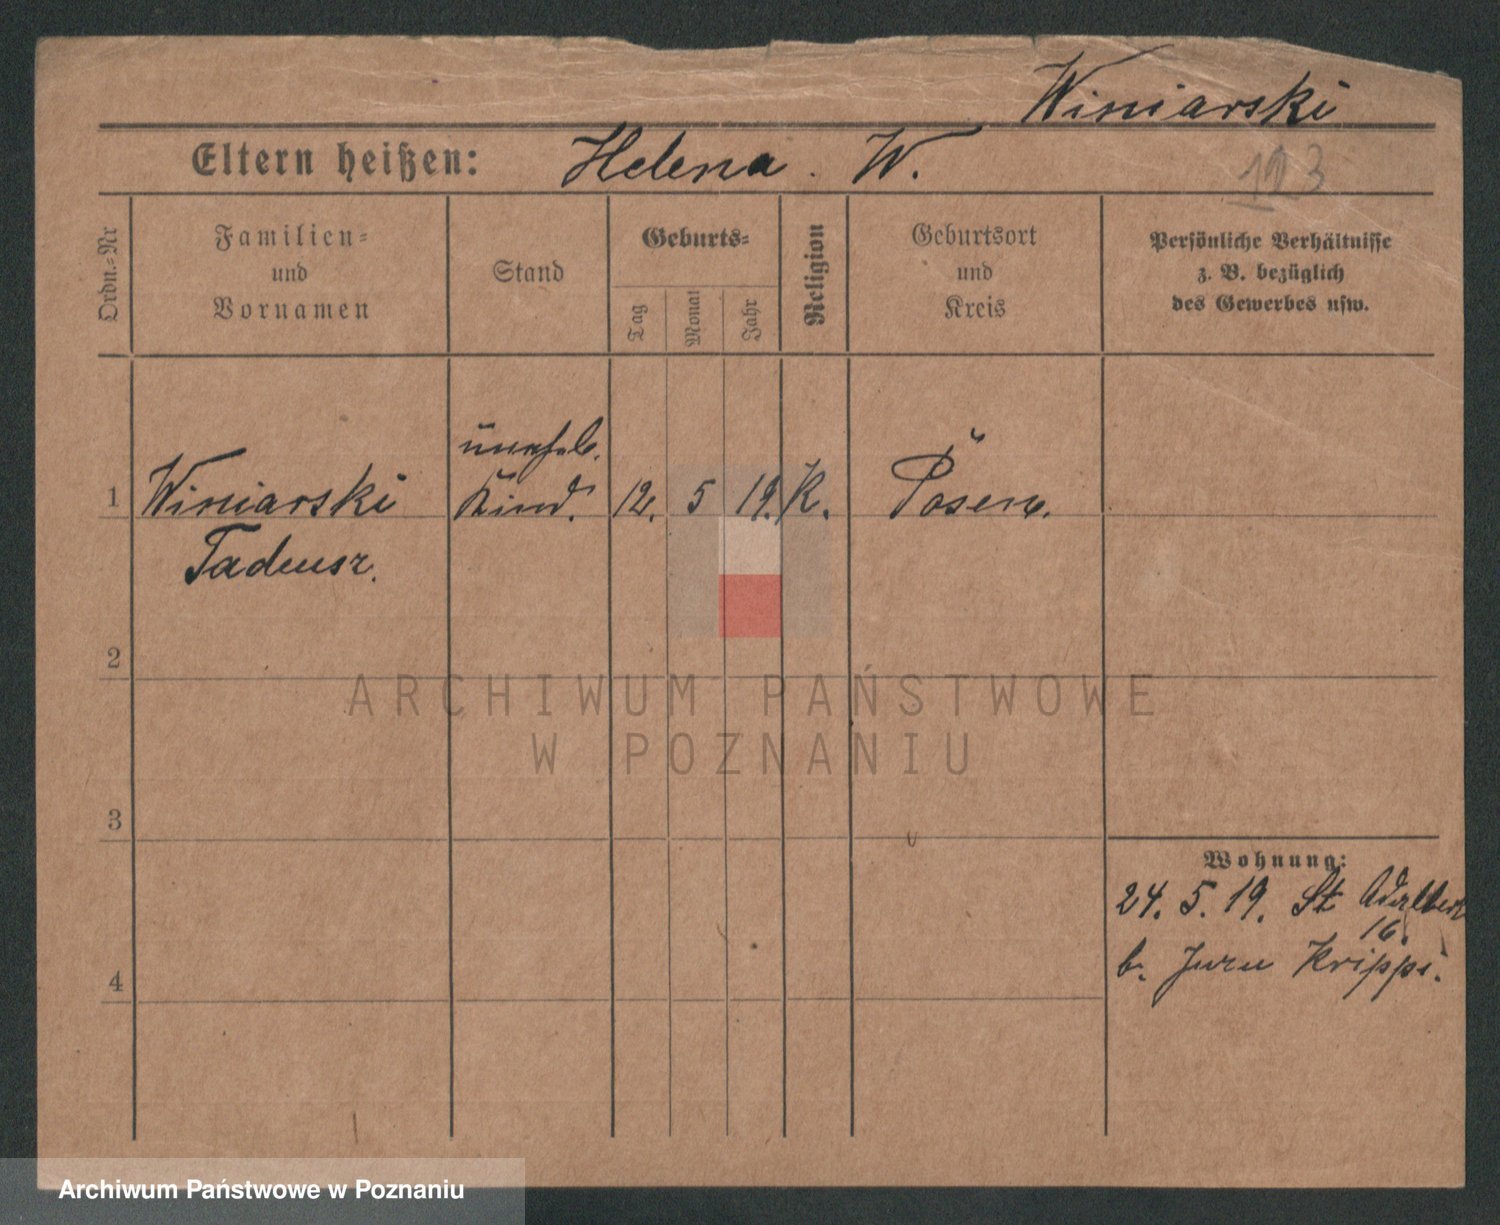 Winiarski
Eltern heißen: Helena. W.
123
Ordn.-Nr
Familien-
und
Vornamen
Stand
Geburts-
Tag
Monat
Jahr
Religion
Geburtsort
und
Kreis
Persönliche Verhältnisse
z. B. bezüglich
des Gewerbes usw.
unehel.
1 Winiarski Kind. 12. 5 19. K. Posen.
Tadeusz.
2
ARCHIWUM PAŃSTWOWE
W POZNANIU
3
Wohnung:
24. 5. 19. St Adalbert
16.
b.
4
Archiwum Państwowe w Poznaniu